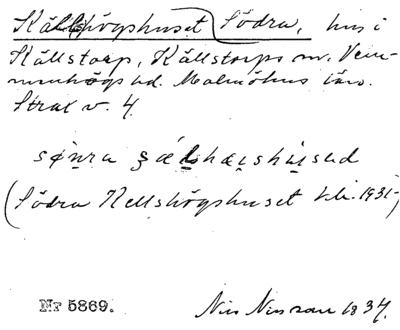 Källshögshuset Södra, hus i
Källstorp, Källstorps sn. Vem-
menhögs hd. Malmöhus län.
Strax v. 4.
(Södra Kellshögshuset k.li. 1931-)
Nr 5869.
Nils Nilsson 1934.